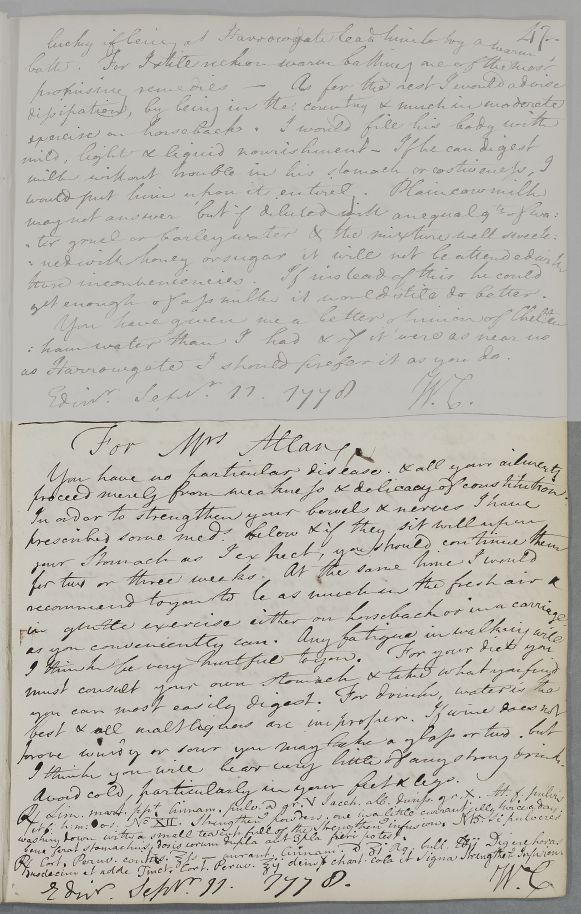 47.
lucky if being at Harrowgate lead him to try a warm
bath. For I still reckon warm bathing one of the most
promising remedies — As for the rest I would advise
dissipation, by being in the country & much in moderate
exercise on horseback. I would fill his body with
mild, light & liquid nourishment — If he can digest
milk without trouble in his stomach or costiveness, I
would put him upon it entirel. Plain cow milk
may not answer but if diluted with an equal qty of wa:
:ter gruel or barley water & the mixture well sweete:
:ned with honey or sugar it will not be attended with
these inconveniencies. If instead of this he could
get enough of ass milk it would still do better.
You have given me a better opinion of Chelten
:ham water than I had & if it were as near us
as Harrowgate I should prefer it as you do.
Edinr. Septr. 11. 1778 W.C.
For Mrs Allan,
You have no particular disease. & all your ailments
proceed merely from weakness & delicacy of constitution.
In order to strengthen your bowels & nerves I have
prescribed some meds. below & if they sit well upon
your stomach as I expect, you should continue them
for two or three weeks. At the same time I would
recommend to you to be as much in the fresh air &
in gentle exercise either on horseback or in a carriage
as you conveniently can. Any fatigue in walking will
I think be very hurtful to you. For your diet you
must consult your own stomach & take what you find
you can most easily digest. For drink, water is the
best & all malt liquors are improper. If wine does not
prove windy or sour you may take a glass or two. but
I think you will bear very little of any strong drink.
Avoid cold, particularly in your feet & legs.
℞ Lim. mart. ppt. Cinnam. pulv. a gr. V Sacch. alb. duriss. gr. X. M. f. pulvis
No XII. Strengthen powders, one in a little currant jelly, twice a day
washing down with a small teacup full of the Strengthen infusion. NB. Si pulveres
bene ferat stomachus, dosis eorum dupla aut tripla
℞ Cort. Peruv. Cinnam. Aq. bull. Digere horas
et adde Tinct. Cort. Peruv. ℥ij dein chart. cola et Signa Strengthen Infusion
Edinr. Septr. 11. 1778. W.C.